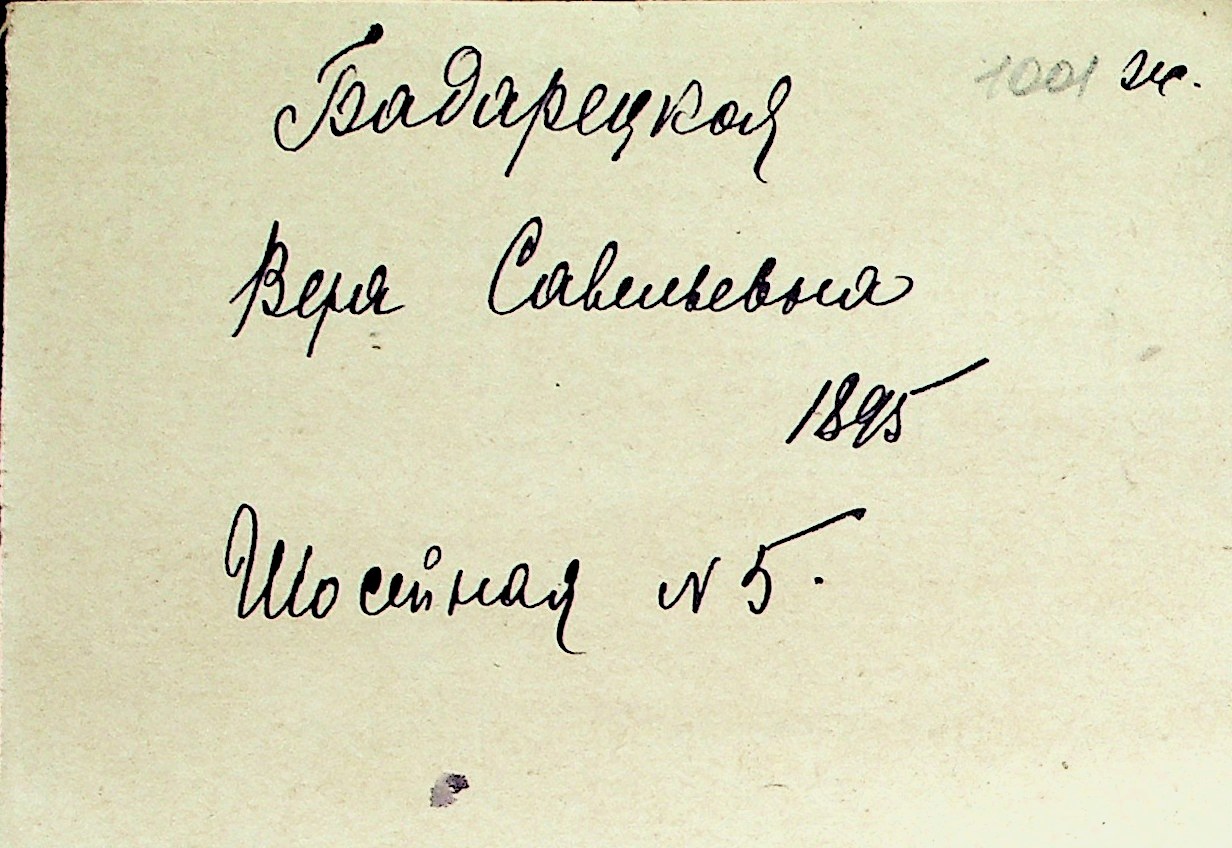 1001 ж.
Бадарецкая
Вера Савельевна
1895
Шосейная № 5.